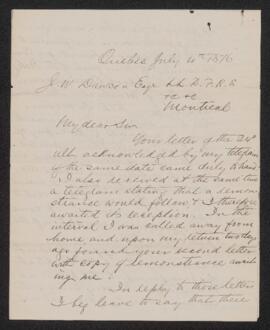 Quebec July 4th 1876
J. W. Dawson Esqr LL.D. F.R.S.
&c &c
Montreal
My dear Sir
Your letter of the 24th
ult. acknowledged by my telegram
of the same date came duly to hand
I also received at the same time
a telegram stating that a remon-
strance would follow & I therefore
awaited its reception. In the
interval I was called away from
home and upon my return two days
ago found your second letter
with copy of remonstrance await-
ing me.
In reply to these letters
I beg leave to say that there